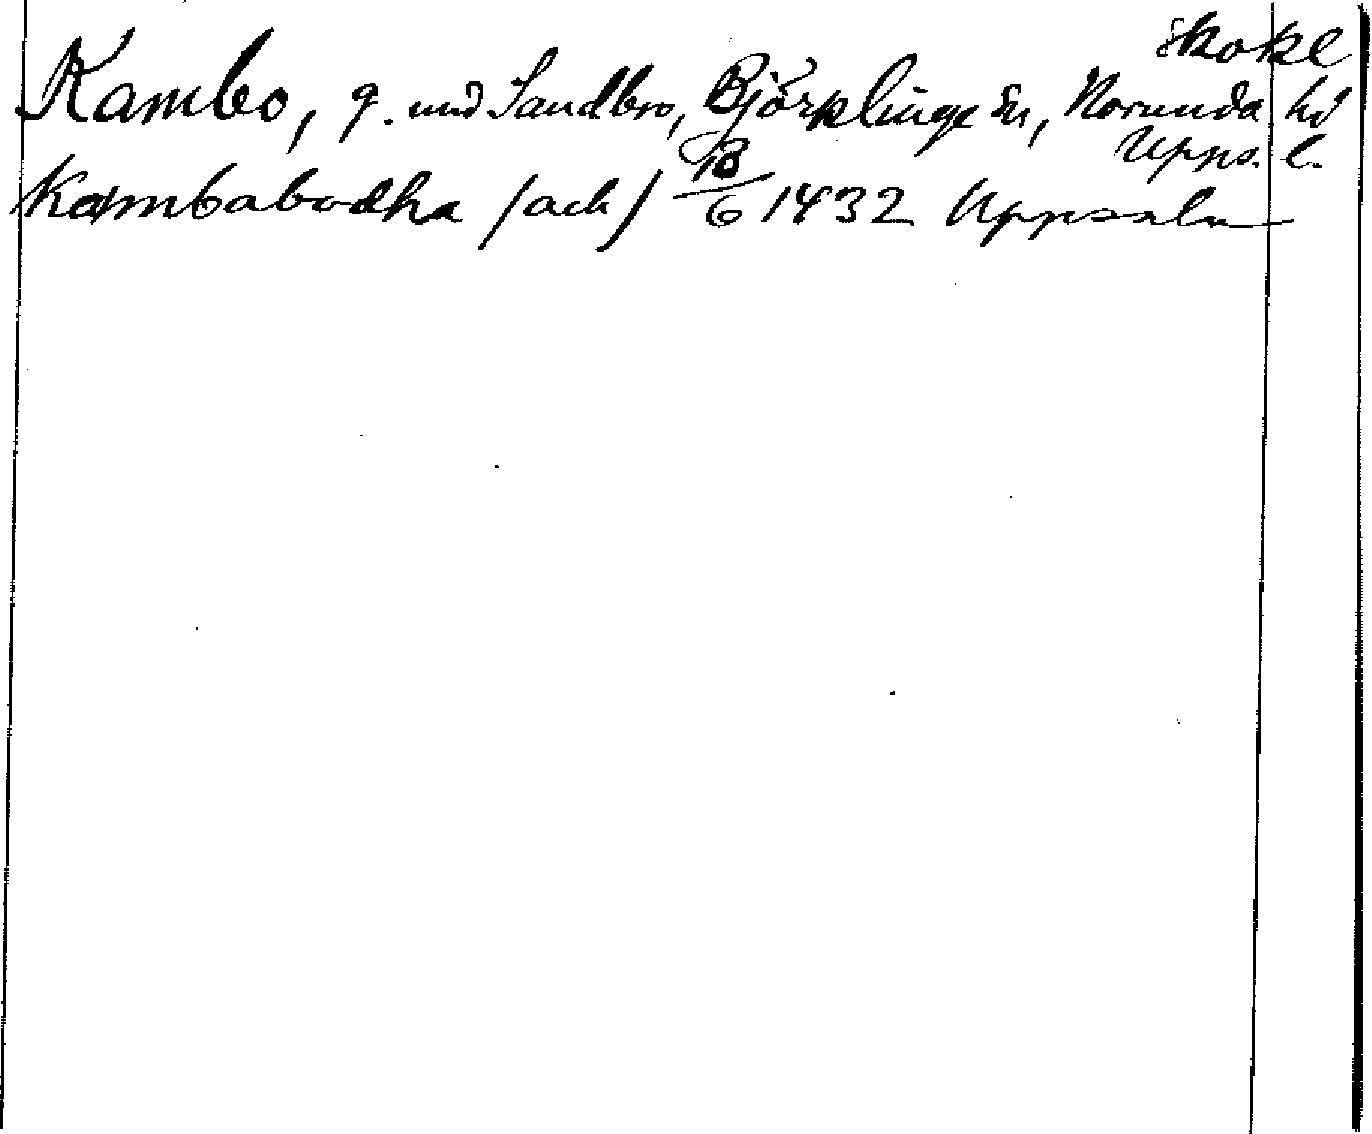 Skokl
Kambo, g. und Sandbro, Björklinge sn, Norunda hd
Upps. l.
Kambabodha (ack) 18/6 1432 Uppsala